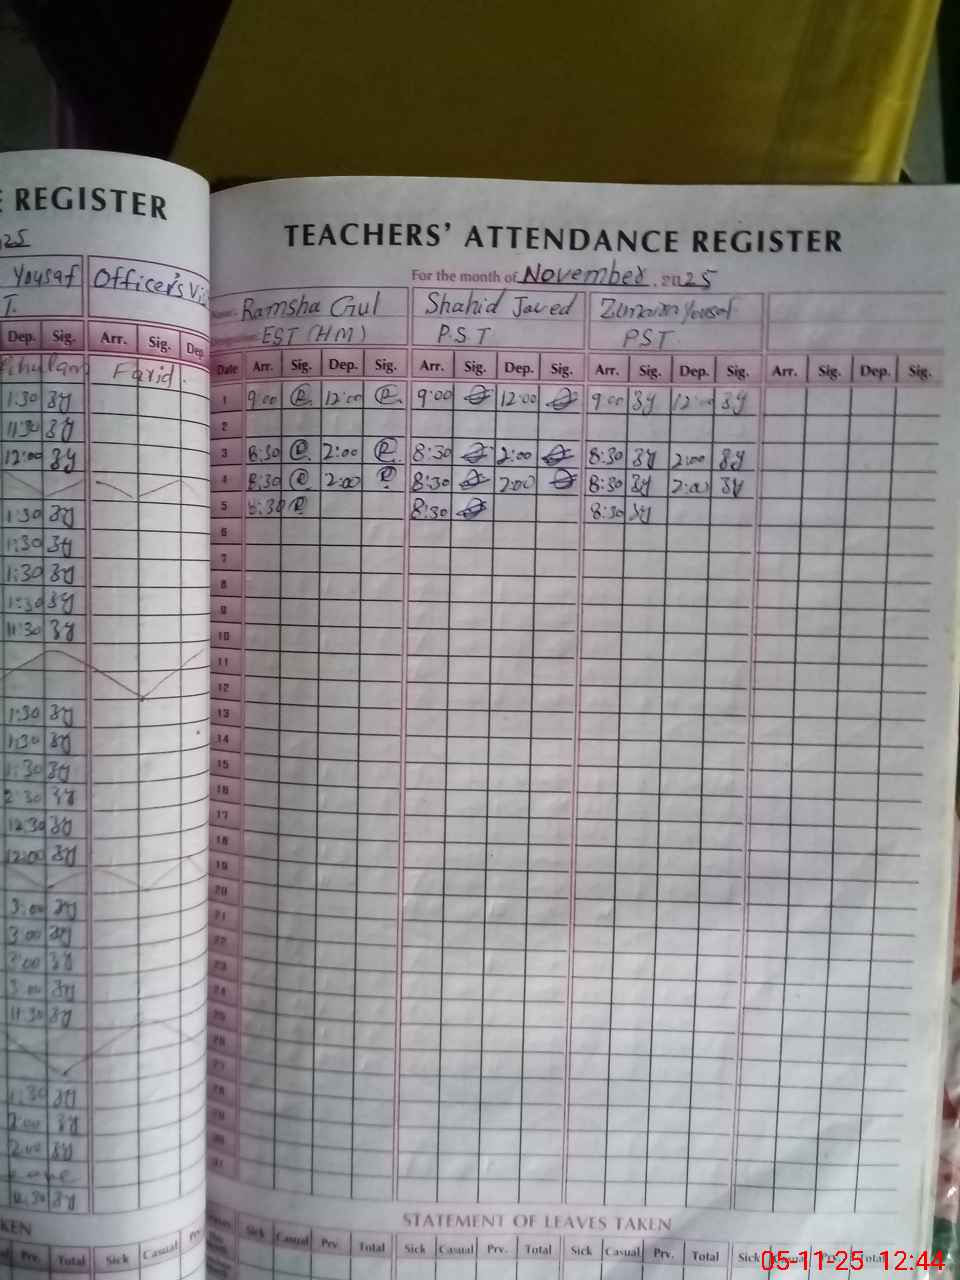 E REGISTER
25
Yousaf Officer's Vi
T.
Dep. Sig. Arr. Sig. Dep.
Ghulam Farid.
1:30 ZY
11:30 ZY
12:00 ZY
1:30 ZY
1:30 ZY
1:30 ZY
1:30 ZY
11:30 ZY
1:30 ZY
1:30 ZY
1:30 ZY
2:30 ZY
12:30 ZY
12:00 ZY
3:00 ZY
3:00 ZY
2:00 ZY
3:00 ZY
11:30 ZY
1:30 ZY
2:00 ZY
2:00 ZY
ZY
KEN
Prv. Total Sick Casual
TEACHERS' ATTENDANCE REGISTER
For the month of November 2025
Name. Ramsha Gul Shahid Javed Zunaira Yousaf
EST (HM) P.S.T PST
Date Arr. Sig. Dep. Sig. Arr. Sig. Dep. Sig. Arr. Sig. Dep. Sig. Arr. Sig. Dep. Sig.
1 9:00 R 12:00 R 9:00 12:00 9:00 ZY 12:00 ZY
2
3 8:30 R 2:00 R 8:30 2:00 8:30 ZY 2:00 ZY
4 8:30 R 2:00 R 8:30 2:00 8:30 ZY 2:00 ZY
5 8:30 R 8:30 8:30 ZY
6
7
8
9
10
11
12
13
14
15
16
17
18
19
20
21
22
23
24
25
26
27
28
29
30
31
STATEMENT OF LEAVES TAKEN
Sick Casual Prv. Total Sick Casual Prv. Total Sick Casual Prv. Total Sick Casual Prv. Total
05-11-25 12:44